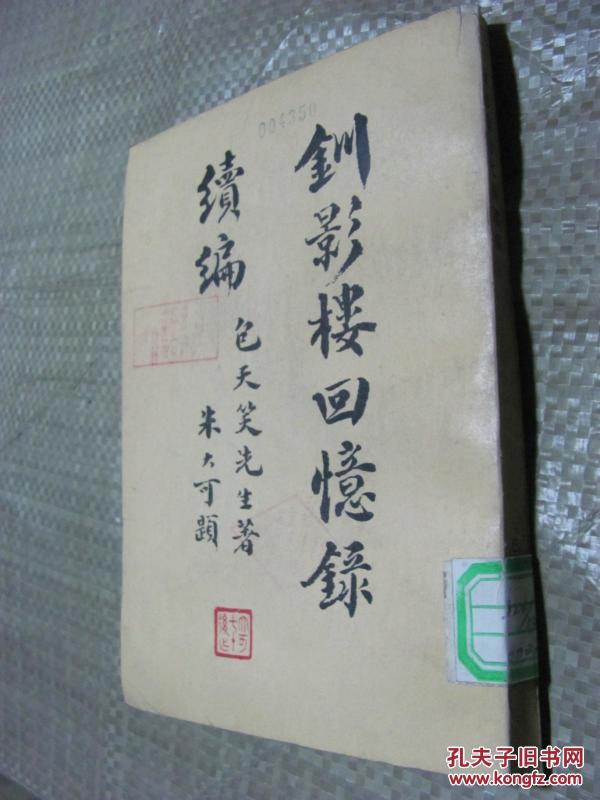 釧影樓回憶錄
續編
包天笑先生著
朱大可題
004350
孔夫子旧书网
www.kongfz.com